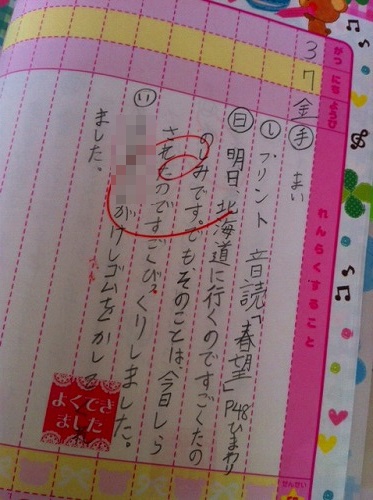 がつ にち ようび
れんらくすること
3 7 金
㋢ まい
㋛ プリント 音読「春望」P48ひまわり
㊐ 明日、北海道に行くのですごくたの
のしみです。でもそのことは今日しら
されたのですごびっくりしました。
㋑
がけしゴムをかして
ました。
よくでき
ました